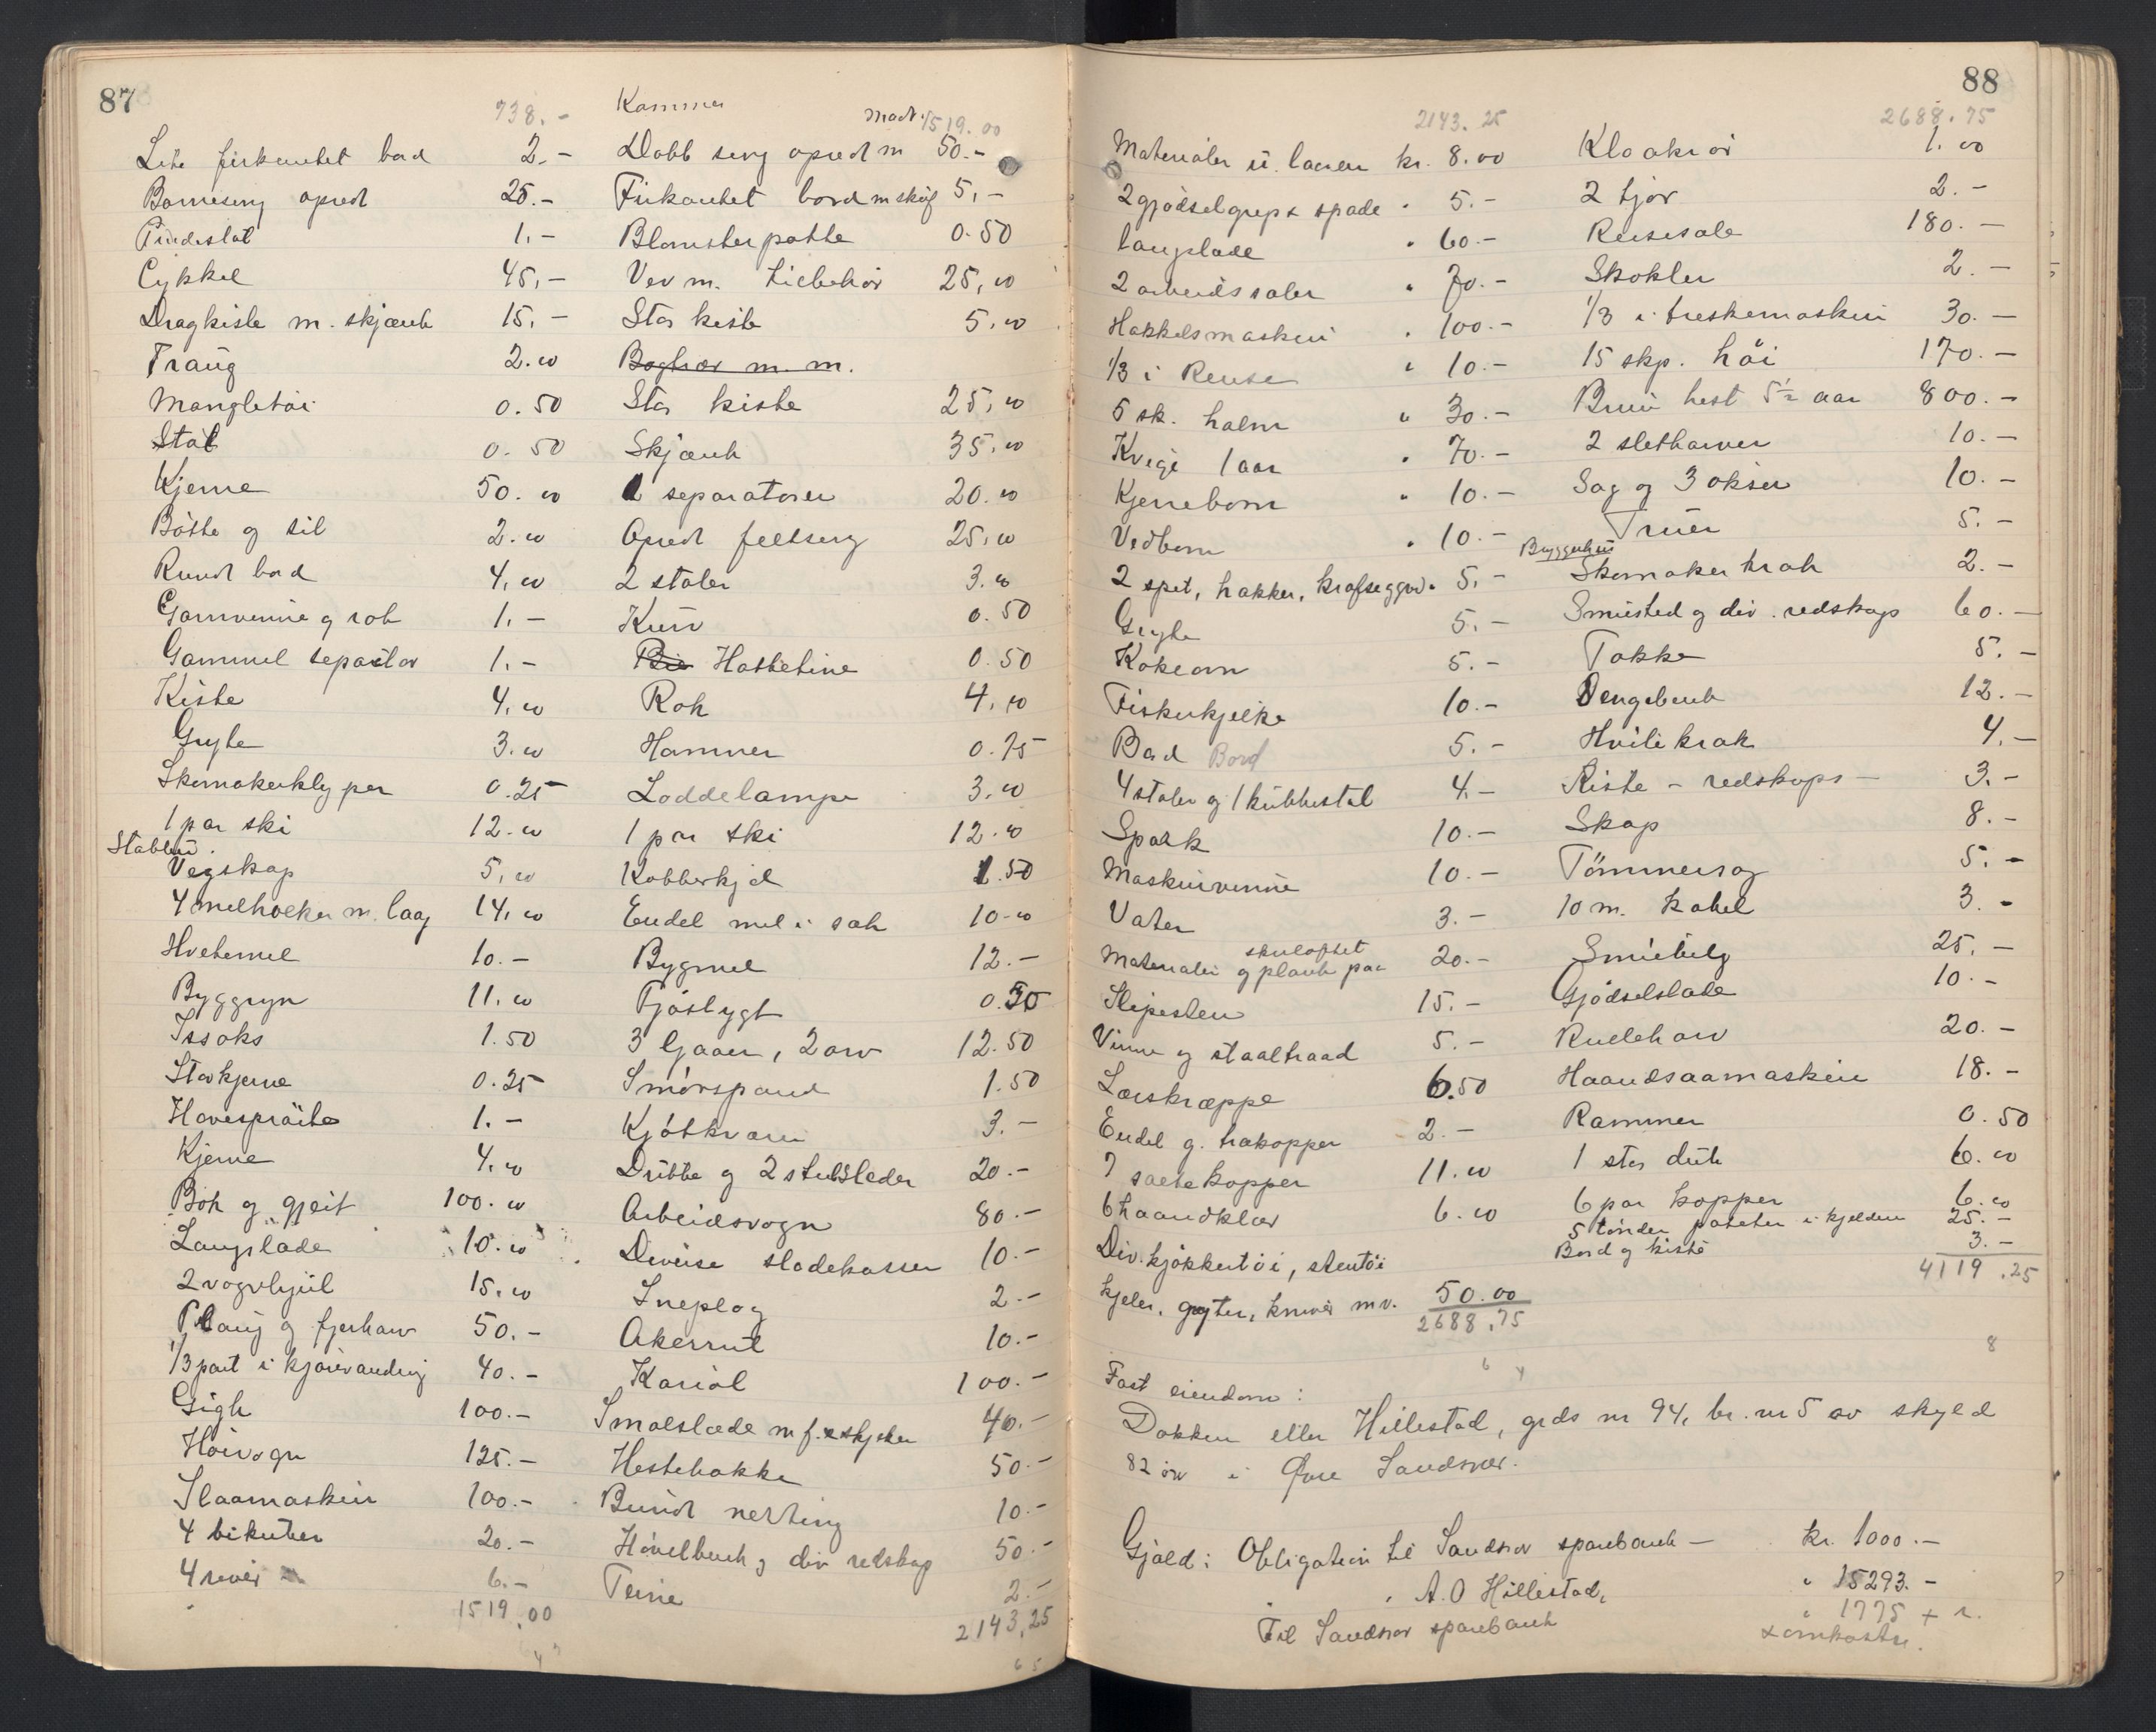 87
738.-
Lite firkantet bord 2.-
Barneseng opredt 25.-
Pindestol 1.-
Cykkel 45,-
Dragkiste m. skjænk 15.-
Traug 2.00
Mangletöi 0.50
Stol 0.50
Kjerne 50.00
Bötte og sil 2.00
Rundt bord 4.00
Garnvinne og rok 1.-
Gammel separator 1.-
Kiste 4.00
Gryte 3.00
Skomakerklyper 0.25
1 par ski 12.00
Stabbur.
Vegskap 5,00
4 melholker m. laag 14,00
Hvetemel 10.-
Byggryn 11.00
Issaks 1.50
Stavkjerne 0.25
Havespröite 1.-
Kjerne 4.00
Bok og gjeit 100.00
Langslæde 10.00
2 vognhjul 15.00
Plaug og fjerharv 50.-
1/3 part i kjörvanding 40.-
Gigh 100.-
Höivogn 125.-
Slaamaskin 100.-
4 bikuber 20.-
4 river 6.-
1519,00
Kammer
madr. 1519.00
Dobb seng opredt m 50.-
Firkantet bord m skuf 5,-
Blomsterpotte 0.50
Vev m. tilbehör 25,00
Stor kiste 5.00
Boghver m. m.
Stor kiste 25,00
Skjænk 35.00
1 separatorer 20.00
Opredt feltseng 25,00
2 stoler 3.00
Kurv 0.50
Hattetine 0.50
Rok 4,00
Hammer 0.75
Loddelampe 3.00
1 par ski 12.00
Kobberkjel 1.50
Endel mel i sæk 10.00
Bygmel 12.-
Fjöslygt 0.30
3 ljaaer, 2 orv 12.50
Smörspand 1.50
Kjötkvern 3.-
Drütte og 2 stutsleder 20.-
Arbeidsvogn 80.-
Diverse sladekasser 10.-
Sneplog 2.-
Akerrul 10.-
Kariol 100.-
Smalslæde m f. 40.-
Hestehakke 50.-
Bundt netting 10.-
Hövelbenk og div redskap 50.-
Teine 2.-
2143,25
88
2143.25
Materialer u. laaven kr. 8.00
2 gjödselgrep & spade " 5.-
Langslæde " 60.-
2 arbeidssaler " 70.-
Hakkelsmaskin " 100.-
1/3 i Rense " 10.-
5 sk. halm " 30.-
Kvige 1 aar " 70.-
Kjerrebom " 10.-
Vedbom " 10.-
2 spet, hakker, krafse 5,-
Gryte 5.-
Kokeovn 5.-
Fiskerkjelke 10.-
Bord Bord 5.-
4 stoler og 1 kubbestol 4.-
Spark 10.-
Maskinvinne 10.-
Vater 3.-
skuloftet
Materialer og plank paa 20.-
Slipesten 15.-
Vinne og staaltraad 5.-
Lærskræppe 6.50
Endel g. trækopper 2.-
7 saltekopper 11.00
6 haandklær 6.00
Div. kjökkentöi, stentöi
kjeler, gryter, kniver mv. 50.00
2688,75
2688.75
Kloakrör 1.00
2 tjor 2.-
Reisesale 180.-
Skokler 2.-
1/3 i treskemaskin 30.-
15 skp. höi 170.-
Brun hest 5½ aar 800.-
2 sletharver 10.-
Sag og 3 økser 10.-
Truer 5.-
Bryggerhus
Skomakerkrak 2.-
Smiested og div. redskap 60.-
Takke 5.-
Sengebenk 12.-
Hvilekrak 4.-
Kiste - redskaps - 3.-
Skap 8.-
Tömmersag 5.-
10 m. kabel 3.-
Smiebelg 25.-
Gjödselslæde 10.-
Rulleharv 20.-
Haandsaamaskin 18.-
Rammer 0.50
1 stor duk 6.00
6 par kopper 6.00
5 tönder poteter i kjelderen 25.-
Bord og kiste 3.-
4119.25
Fast eiendom:
Dokken eller Hillestad, grds nr 94, br. nr 5 av skyld
82 öre i Øvre Sandsvær.
Gjæld: Obligation til Sandsvær sparebank - kr. 1000.-
" A. O Hillestad, " 15293.-
Til Sandsvær sparebank " 1775 + r.
& omkostn.